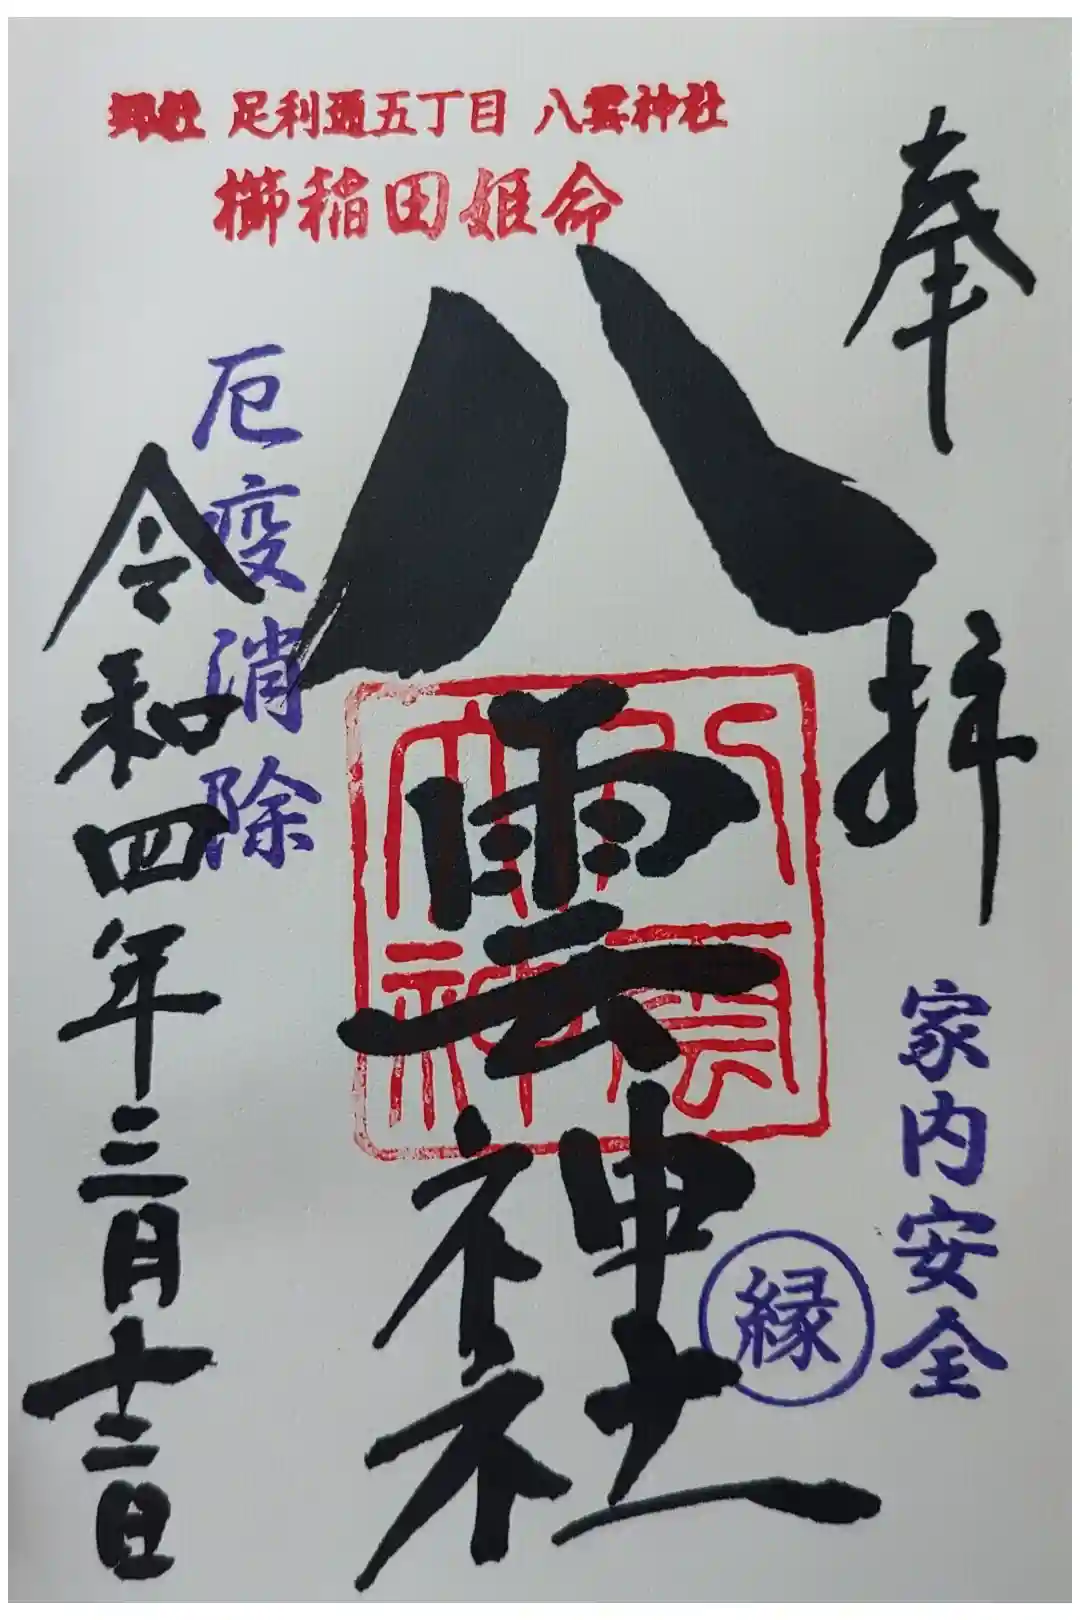 郷社 足利通五丁目 八雲神社
櫛稲田姫命
奉拝
家内安全
縁
八雲神社
八雲神社
厄疫消除
令和四年三月十二日